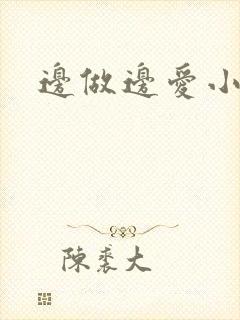 邊做邊愛小
陳裘大